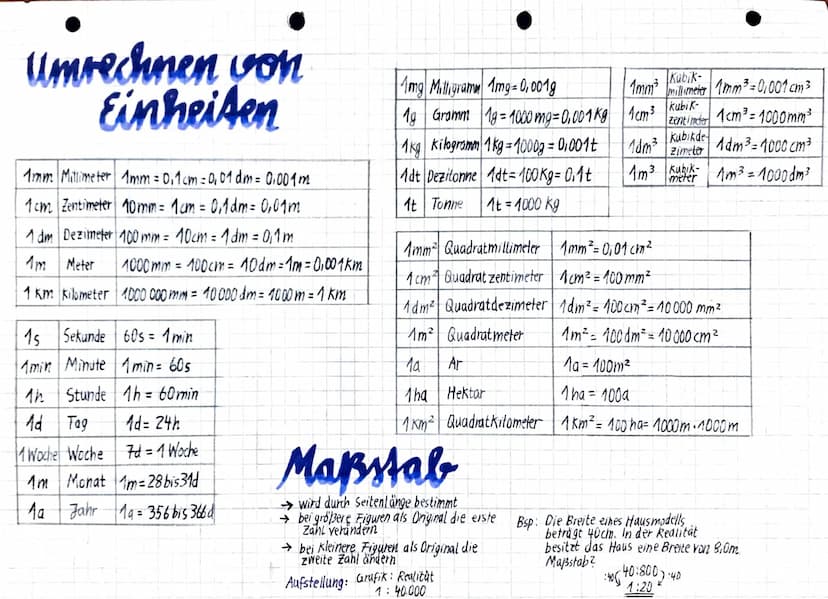 Umrechnen von
Einheiten
1mm Millimeter 1mm = 0,1cm = 0,01dm = 0,001m
1cm Zentimeter 10mm = 1cm = 0,1dm = 0,01m
1dm Dezimeter 100mm = 10cm = 1dm = 0,1m
1m Meter 1000mm = 100cm = 10dm = 1m = 0,001km
1km Kilometer 1000 000mm = 10000dm = 1000m = 1km
1s Sekunde 60s = 1min
1min Minute 1min = 60s
1h Stunde 1h = 60min
1d Tag 1d = 24h
1Woche Woche 7d = 1Woche
1m Monat 1m = 28bis31d
1a Jahr 1a = 356bis366d
1mg Milligramm 1mg = 0,001g
1g Gramm 1g = 1000mg = 0,001kg
1kg Kilogramm 1kg = 1000g = 0,001t
1dt Dezitonne 1dt = 100kg = 0,1t
1t Tonne 1t = 1000kg
1mm³ Kubik-
millimeter 1mm³ = 0,001cm³
1cm³ Kubik-
zentimeter 1cm³ = 1000mm³
1dm³ Kubikde-
zimeter 1dm³ = 1000cm³
1m³ Kubik-
meter 1m³ = 1000dm³
1mm² Quadratmillimeter 1mm² = 0,01cm²
1cm² Quadratzentimeter 1cm² = 100mm²
1dm² Quadratdezimeter 1dm² = 100cm² = 10000mm²
1m² Quadratmeter 1m² = 100dm² = 10000cm²
1a Ar 1a = 100m²
1ha Hektar 1ha = 100a
1km² Quadratkilometer 1km² = 100ha = 1000m·1000m
Maßstab
→ wird durch Seitenlänge bestimmt
→ bei größere Figuren als Original die erste
Zahl verändern
→ bei kleinere Figuren als Original die
zweite Zahl ändern
Aufstellung: Grafik : Realität
1 : 40.000
Bsp: Die Breite eines Hausmodells
beträgt 40cm. In der Realität
besitzt das Haus eine Breite von 8,0m.
Maßstab?
:40 40:800 :40
1:20